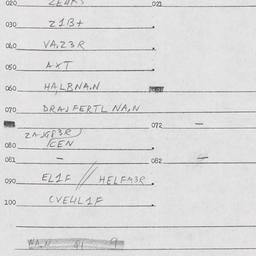 020 021
030 Z1B+
040 VAZ3R
050 AXT
060 HALBNAN
070 DRAJFERTLNAN
072 —
080 /CEN
081 — 082 —
090 EL1F // HELFA3R
100 CVEHL1F